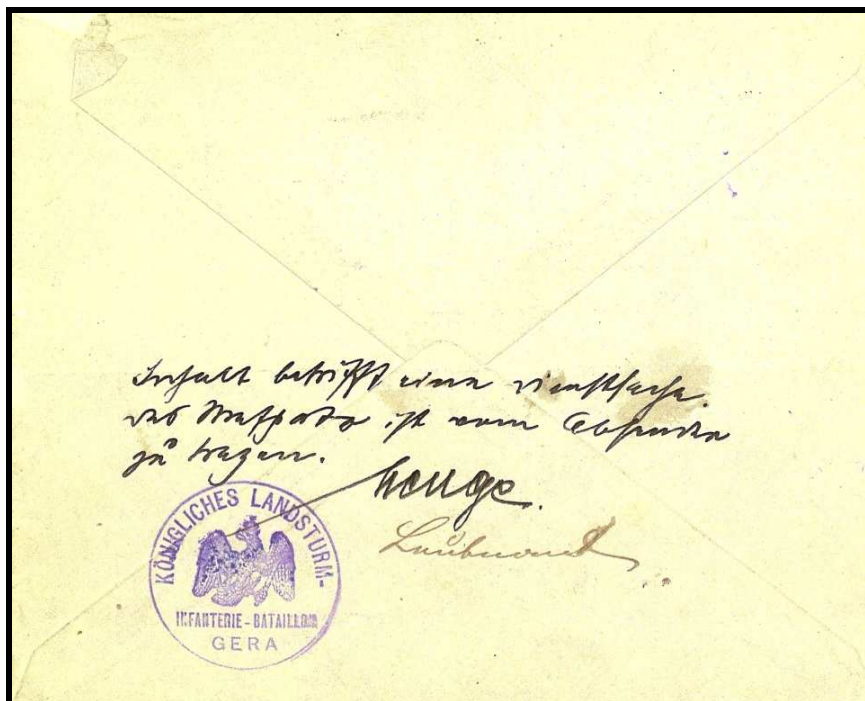 Inhalt betrifft eine Dienstsache.
das ist vom Absender
zu tragen.
Leutnant
KÖNIGLICHES LANDSTURM-
INFANTERIE-BATAILLON
GERA